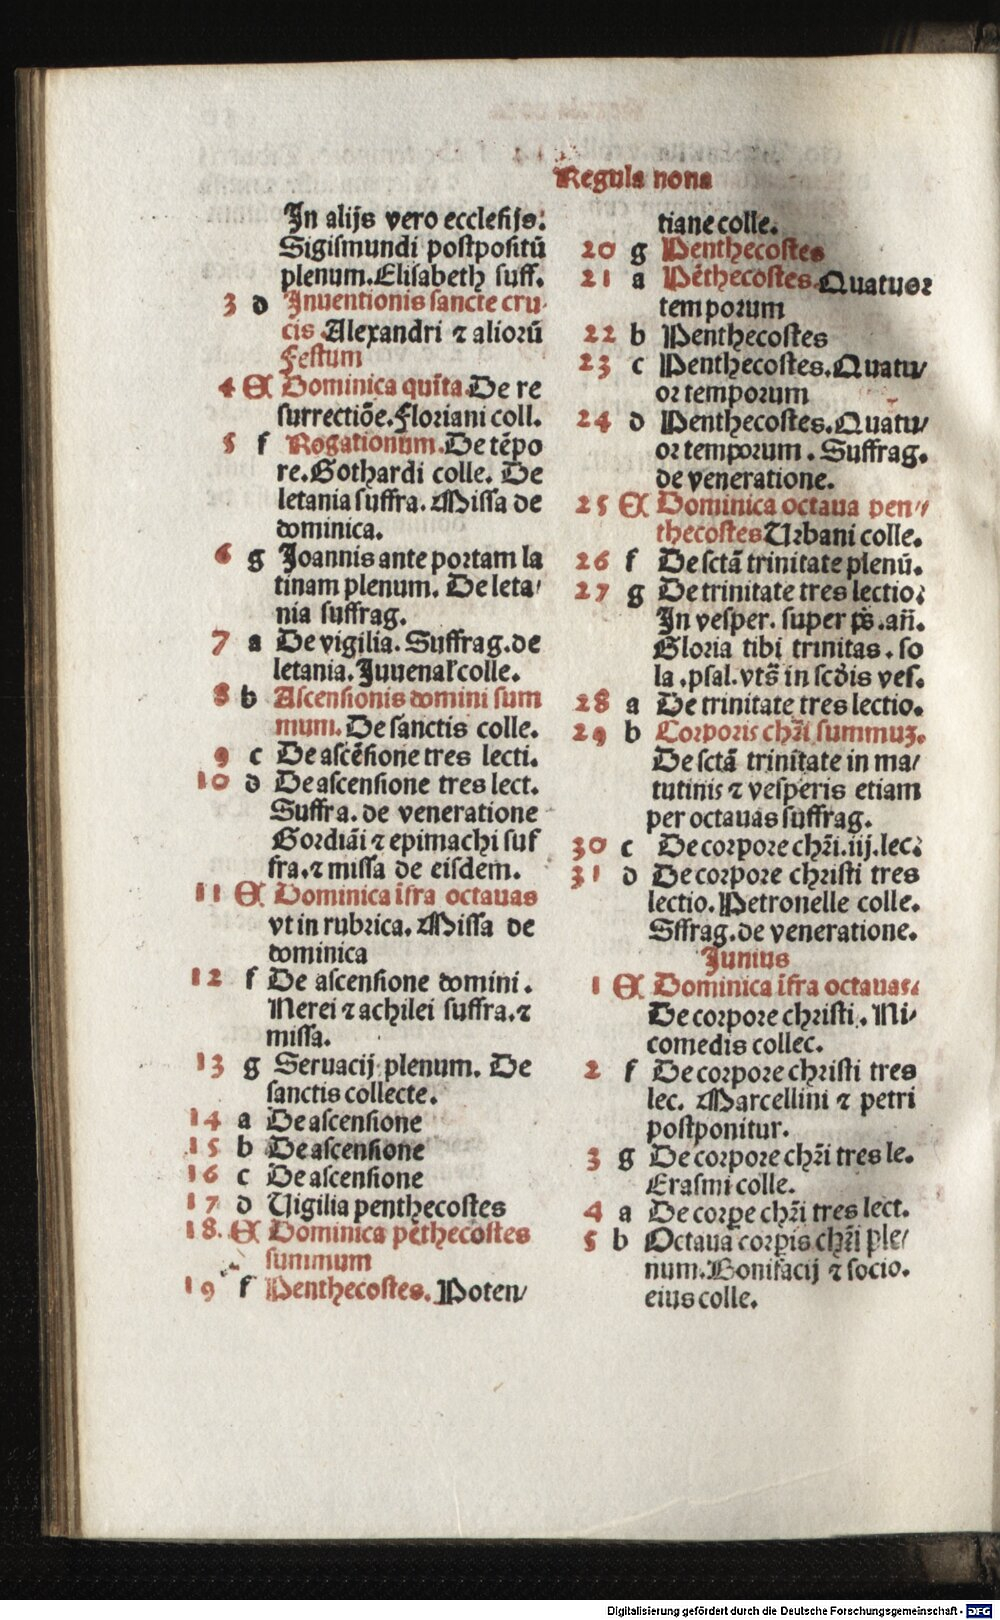 Regula nona
In alijs vero ecclesijs:
Sigismundi postpositū
plenum. Elisabeth suff.
3 d Inuentionis sancte cru-
cis Alexandri ⁊ aliorū
Festum
4 A De Dominica quīta De re
surrectiōe. Floriani coll.
5 f Rogationum. De tēpo
re. Gothardi colle. De
letania suffra. Missa de
dominica.
6 g Joannis ante portam la
tinam plenum. De leta/
nia suffrag.
7 a De vigilia. Suffrag. de
letania. Juuenal' colle.
8 b Ascensionis domini sum
mum. De sanctis colle.
9 c De ascēsione tres lecti.
10 d De ascensione tres lect.
Suffra. de veneratione
Gordiāi ⁊ epimachi suf
fra. ⁊ missa de eisdem.
11 A Dominica īfra octauas
vt in rubrica. Missa de
dominica
12 f De ascensione domini.
Nerei ⁊ achilei suffra. ⁊
missa.
13 g Seruacij plenum. De
sanctis collecte.
14 a De ascensione
15 b De ascensione
16 c De ascensione
17 d Uigilia penthecostes
18. A Dominica pēthecostes
summum
19 f Penthecostes. Poten/
tiane colle.
20 g Penthecostes
21 a Pēthecostes. Quatuor
temporum
22 b Penthecostes
23 c Penthecostes. Quatu/
or temporum
24 d Penthecostes. Quatu/
or temporum. Suffrag.
de veneratione.
25 A Dominica octaua pen/
thecostes Urbani colle.
26 f De sctā trinitate plenū.
27 g De trinitate tres lectio:
In vesper. super ps̄. añ.
Gloria tibi trinitas. so
la. psal. vts̄ in scd̄is ves.
28 a De trinitate tres lectio.
29 b Corporis chr̄i summuʒ.
De sctā trinitate in ma/
tutinis ⁊ vesperis etiam
per octauas suffrag.
30 c De corpore chr̄i. iij. lec:
31 d De corpore christi tres
lectio. Petronelle colle.
Sffrag. de veneratione.
Junius
1 A Dominica īfra octauas:
De corpore christi. Ni-
comedis collec.
2 f De corpore christi tres
lec. Marcellini ⁊ petri
postponitur.
3 g De corpore chr̄i tres le.
Erasmi colle.
4 a De corꝑe chr̄i tres lect.
5 b Octaua corꝑis chr̄i ple/
num. Bonifacij ⁊ socio.
eius colle.
Digitalisierung gefördert durch die Deutsche Forschungsgemeinschaft - DFG